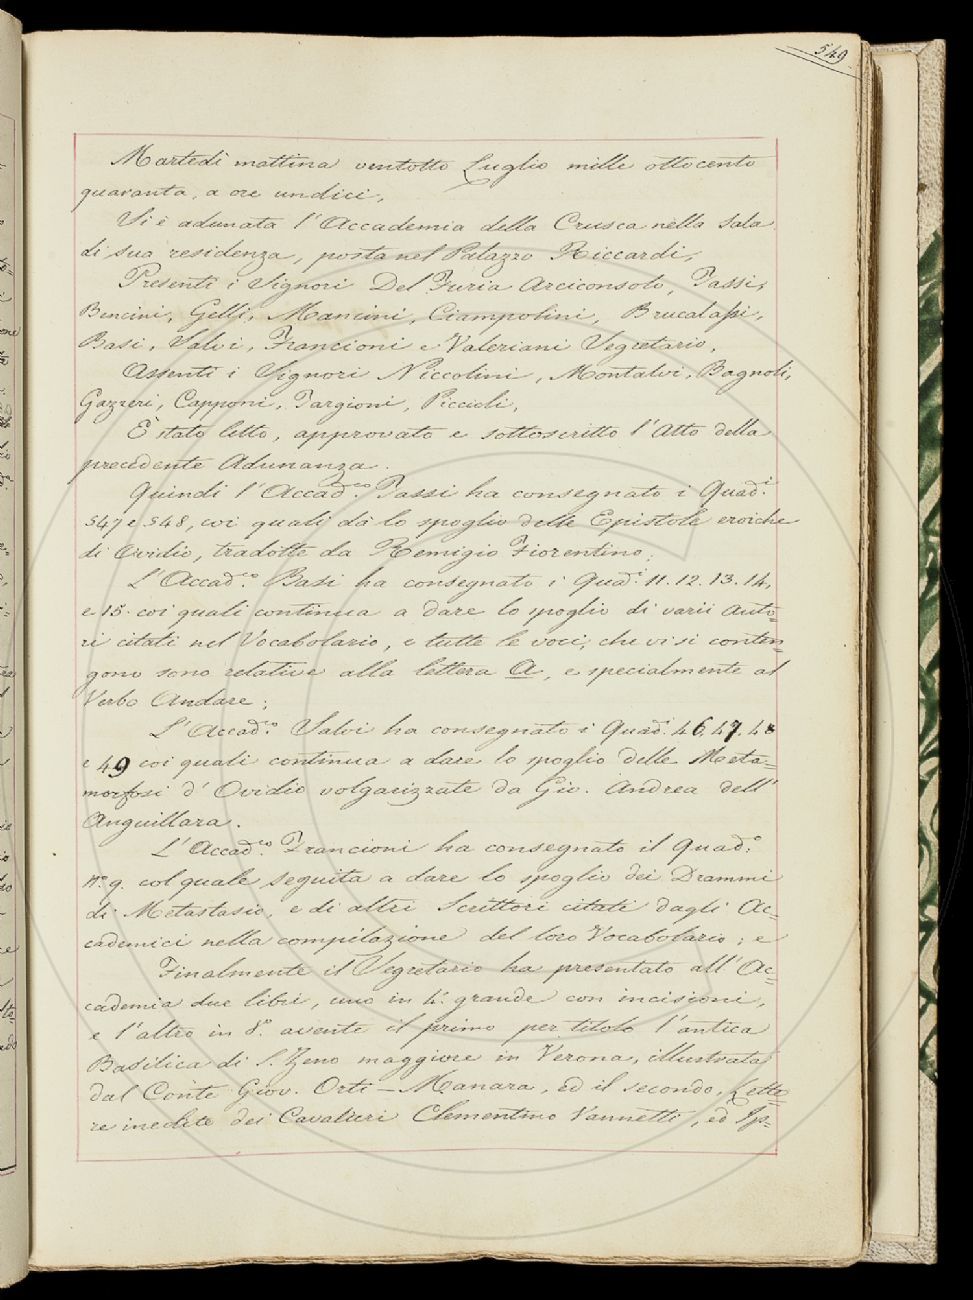 549
Martedì mattina ventotto Luglio mille ottocento
quaranta, a ore undici,
Si è adunata l'Accademia della Crusca nella Sala
di sua residenza, posta nel Palazzo Riccardi;
Presenti i Signori Del Furia Arciconsolo, Tassi,
Bencini, Gelli, Mancini, Ciampolini, Brucalassi,
Basi, Salvi, Francioni e Valeriani Segretario,
Assenti i Signori Niccolini, Montalvi, Bagnoli,
Gazzeri, Capponi, Targioni, Piccioli,
È stato letto, approvato e sottoscritto l'Atto della
precedente Adunanza.
Quindi l'Accad.co Tassi ha consegnato i Quad.i
547 e 548, coi quali dà lo spoglio delle Epistole eroiche
di Ovidio, tradotte da Remigio Fiorentino;
L'Accad.o Basi ha consegnato i Quad.i 11. 12. 13. 14,
e 15. coi quali continua a dare lo spoglio di varii Auto=
ri citati nel Vocabolario, e tutte le voci, che vi si conten=
gono sono relative alla lettera A, e specialmente al
Verbo Andare;
L'Accad.o Salvi ha consegnato i Quad.i 46, 47, 48
e 49 coi quali continua a dare lo spoglio delle Meta=
morfosi d'Ovidio volgarizzate da Gio. Andrea dell'
Anguillara.
L'Accad.co Francioni ha consegnato il Quad.o
n.o 9. col quale seguita a dare lo spoglio dei Drammi
di Metastasio, e di altri Scrittori citati dagli Ac=
cademici nella compilazione del loro Vocabolario; e
Finalmente il Segretario ha presentato all'Ac=
cademia due libri, uno in 4.o grande con incisioni,
e l'altro in 8.o avente il primo per titolo l'antica
Basilica di S. Zeno maggiore in Verona, illustrata
dal Conte Giov. Orti=Manara, ed il secondo, Lette=
re inedite dei Cavalieri Clementino Vannetti, ed Ip=